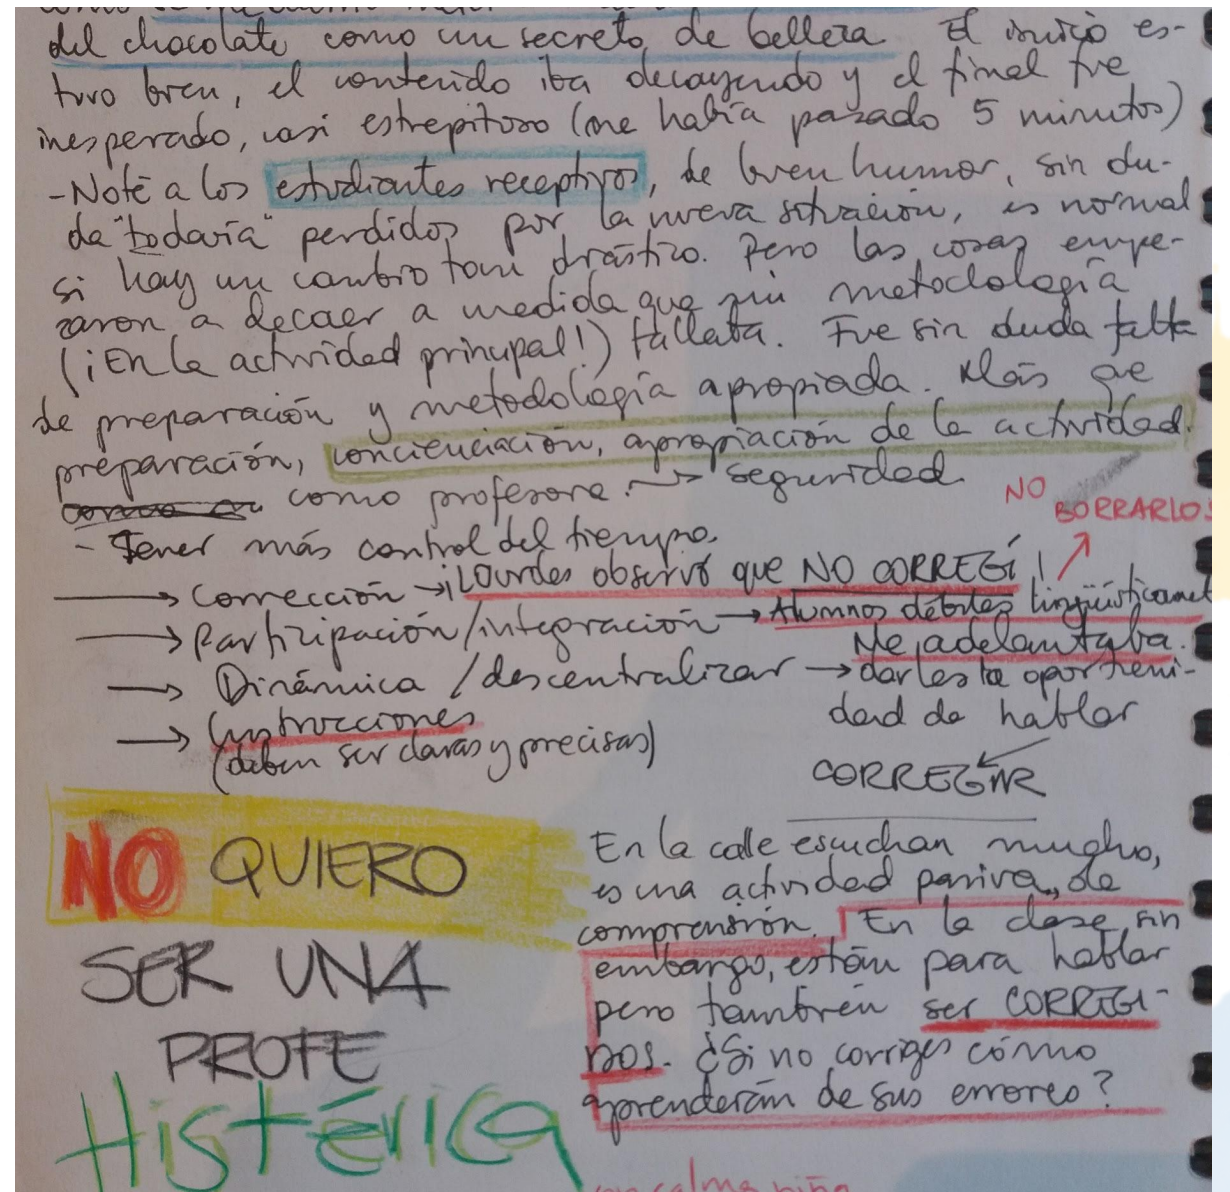 del chocolate como un secreto de belleza. El inicio es-
tuvo bien, el contenido iba decayendo y el final fue
inesperado, casi estrepitoso (me había pasado 5 minutos)
- Noté a los estudiantes receptivos, de buen humor, sin du-
da "todavía" perdidos por la nueva situación, es normal
si hay un cambio tan drástico. Pero las cosas empe-
zaron a decaer a medida que mi metodología
(¡En la actividad principal!) fallaba. Fue sin duda falta
de preparación y metodología apropiada. Más que
preparación, concienciación, apropiación de la actividad.
como profesora. → seguridad
- Tener más control del tiempo.
NO
BORRARLOS
→ Corrección → ¡Lourdes observó que NO CORREGÍ!
→ Participación/integración → Alumnos débiles lingüísticamet
Me adelantaba.
→ Dinámica / descentralizar → darles la oportuni-
dad de hablar
→ Instrucciones
(deben ser claras y precisas)
CORREGIR
NO QUIERO
SER UNA
PROFE
HistÉrica
En la calle escuchan mucho,
es una actividad pasiva, de
comprensión. En la clase sin
embargo, están para hablar
pero también ser CORREGI-
DOS. ¿Si no corriges cómo
aprenderán de sus errores?
calma niña